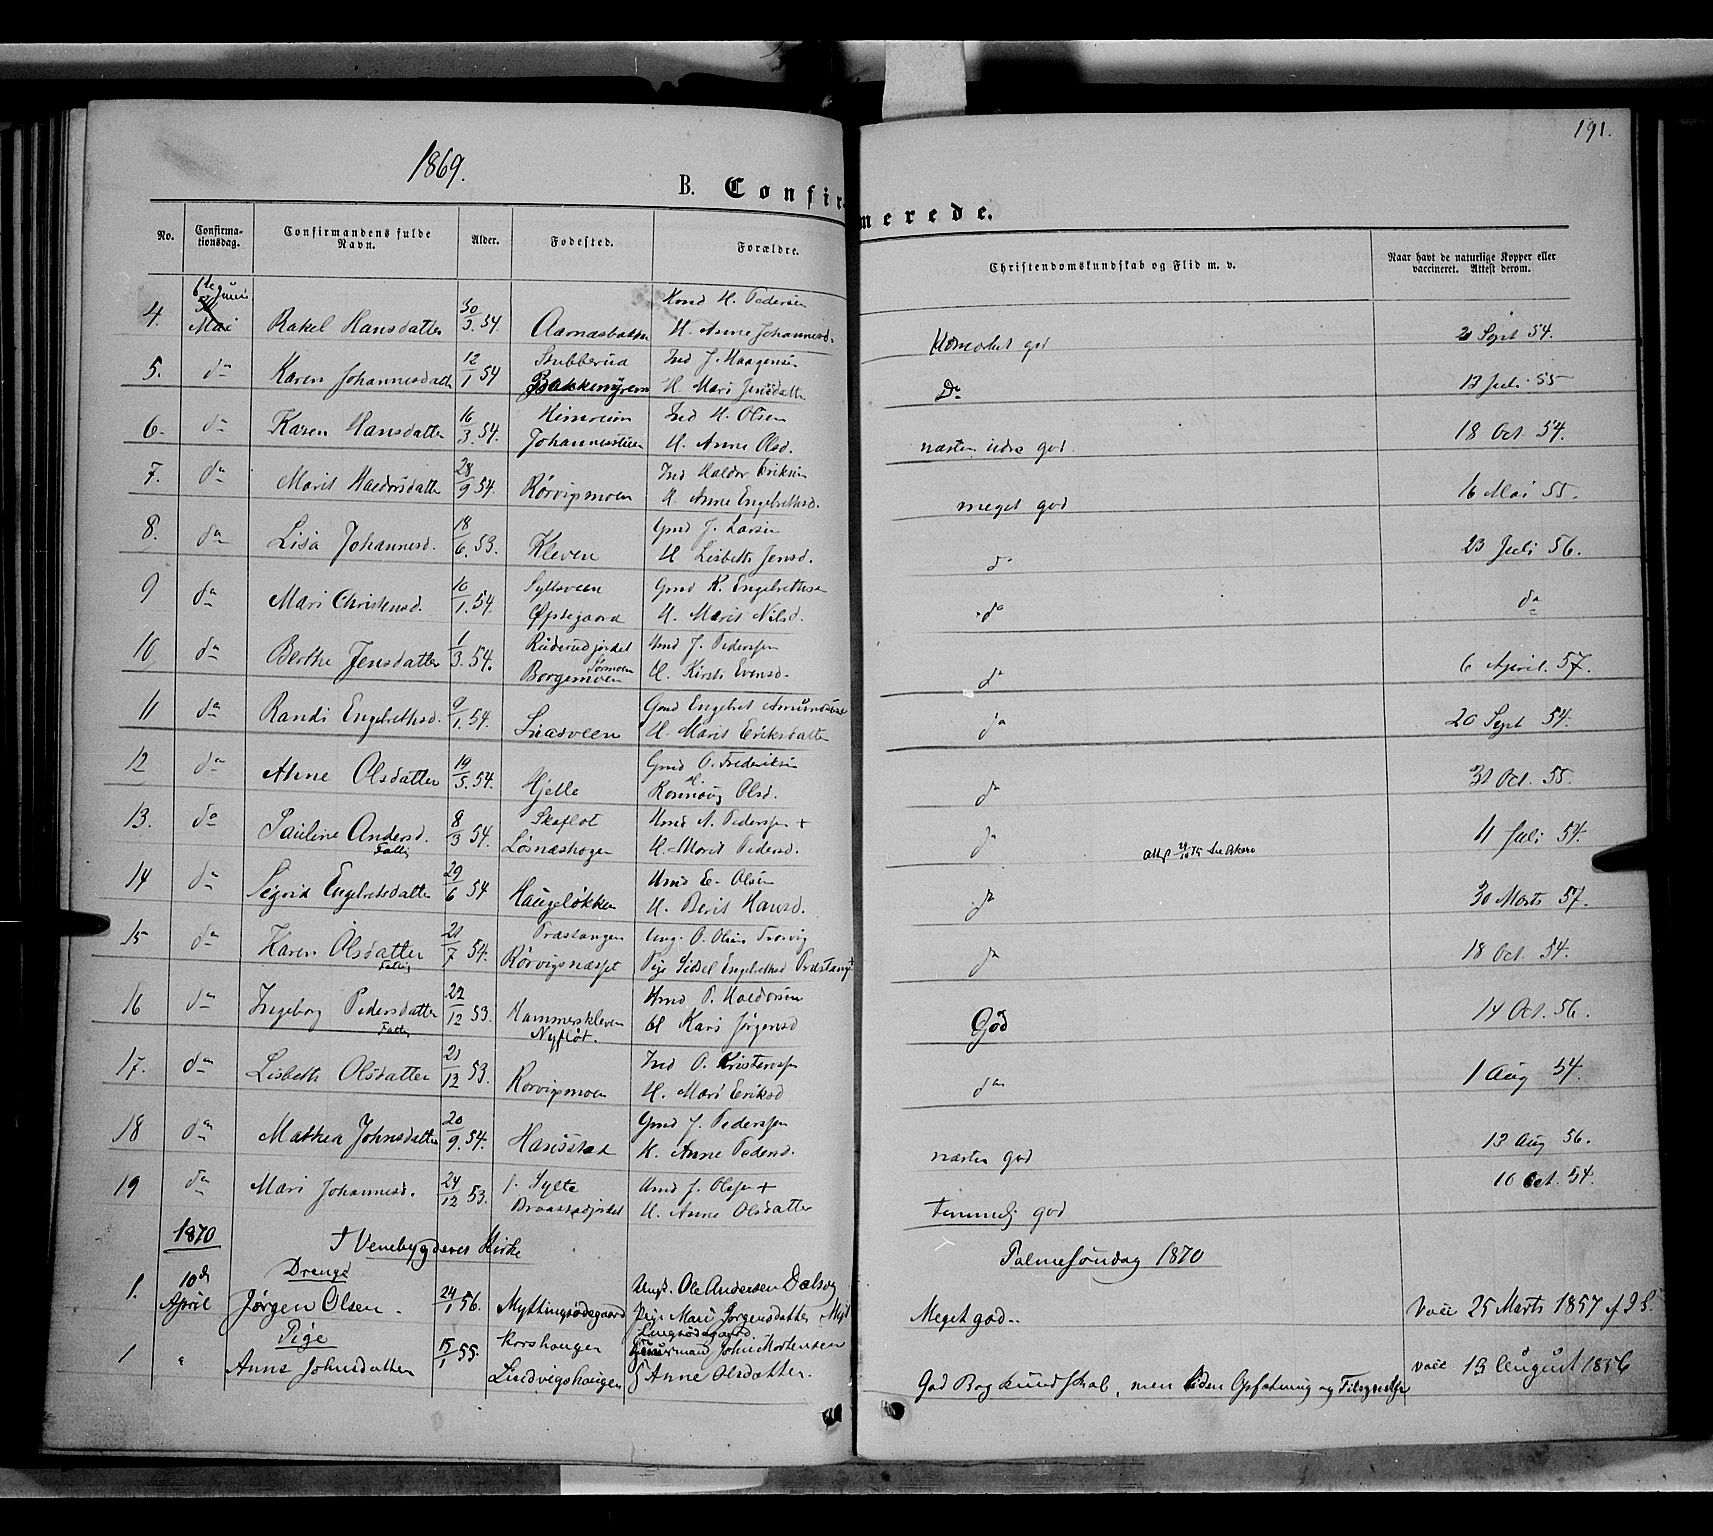 191.
1869.
B. Confirmerede.
No.
Confirmationsdag.
Confirmandens fulde Navn.
Alder.
Fødested.
Forældre.
Christendomskundskab og Flid m. v.
Naar havt de naturlige Kopper eller vaccineret. Attest derom.
6te Juni
Mai
4. Rakel Hansdatter 30/3 54. Aarnæsbakken H. Pedersen
H. Anne Johannesd. god 21 Sept 54.
5. do Karen Johannesdatter 12/1 54 Stubberud Ind J. Haagensen
Bakkemyren H. Mari Jensdatter Do 13 Juli 55
6. do Karen Hansdatter 16/3. 54. Ind H. Olsen
Johannesstuen H. Anne Olsd. næsten god. 18 Oct 54.
7. do Marit Haldorsdatter 28/9 54. Rørvigmoen Ind Haldor Eriksen
H. Anne Engebrethsd. meget god 16 Mai 55.
8. do Lisa Johannesd. 18/6. 53. Kleven Gmd J. Larsen
H. Lisbeth Jensd. do 23 Juli 56.
9 do Mari Christensd. 10/1. 54. Sylteveen Gmd K. Engebrethsen
Øistegaard H. Marit Nilsd. do do
10 do Berthe Jensdatter 1/3. 54. Ruderudjordet Hmd J. Pederssen
Sørmoen
Borgemoen H. Kirsti Evensd. do 6 April. 57.
11 do Randi Engebrethsd. 9/1. 54. Snadveen Gmd Engebret Amundsen
H. Marit Eriksdatter do 20 Sept 54.
12 do Anne Olsdatter 19/5. 54. Hjelle Gmd O. Frederiksen
H. Rønnaug Olsd. do 31 Oct. 55.
13. do Pauline Andersd. 8/3 54. Skaflot Hmd A. Pederssen +
Fattig Løsnæshagen H. Marit Pedersd. do 11 Juli 54.
14 do Sigrid Engebretsdatter 29/6 54 Haugeløkken Hmd E. Olsen
H. Berit Hansd. do 30 Marts 57.
15 do Karen Olsdatter 21/7 54. Præstangen Ung. O. Olsen
Fattig Rørvigsnæsset Pige Sidsel Engebrethsd Præstang do 18 Oct. 54.
16 do Ingeborg Pedersdatter 22/12 53. Hammerskleven Hmd P. Haldorsen
Fattig Nyfløt. H Kari Jørgensd God 14 Oct. 56.
17. do Lisbeth Olsdatter 21/12 53. Rørvigmoen Ind O. Kristenssen
H. Mari Eriksd do 1 Aug 54.
18 do Mathea Johnsdatter 20/9. 54. Hansstad Gmd J. Pederssen
H. Anne Pedersd. næsten god 12 Aug 56.
19 do Mari Johannesd. 24/12 53. Sylte Hmd J. Olssen +
H. Anne Olsdatter Temmelig god 10 Oct. 54.
1870 I Venebygdens Kirke Palmesøndag 1870
Dreng
1. 10de April Jørgen Olsen. 24/1 56. Myttingsødegaard Ungk. Ole Andersen Dalseg
Pige Mari Jørgensdatter Myt
tingsødegaard Meget god. Vacc 25 Marts 1857 af
Pige
1 " Anne Johnsdatter 15/1 55. Korshaugen John Mortensen
Lindvigshaugen Anne Olsdatter. God Bogkundskab, men uden Opfatning og Tilegnelse vacc 13 August 1856